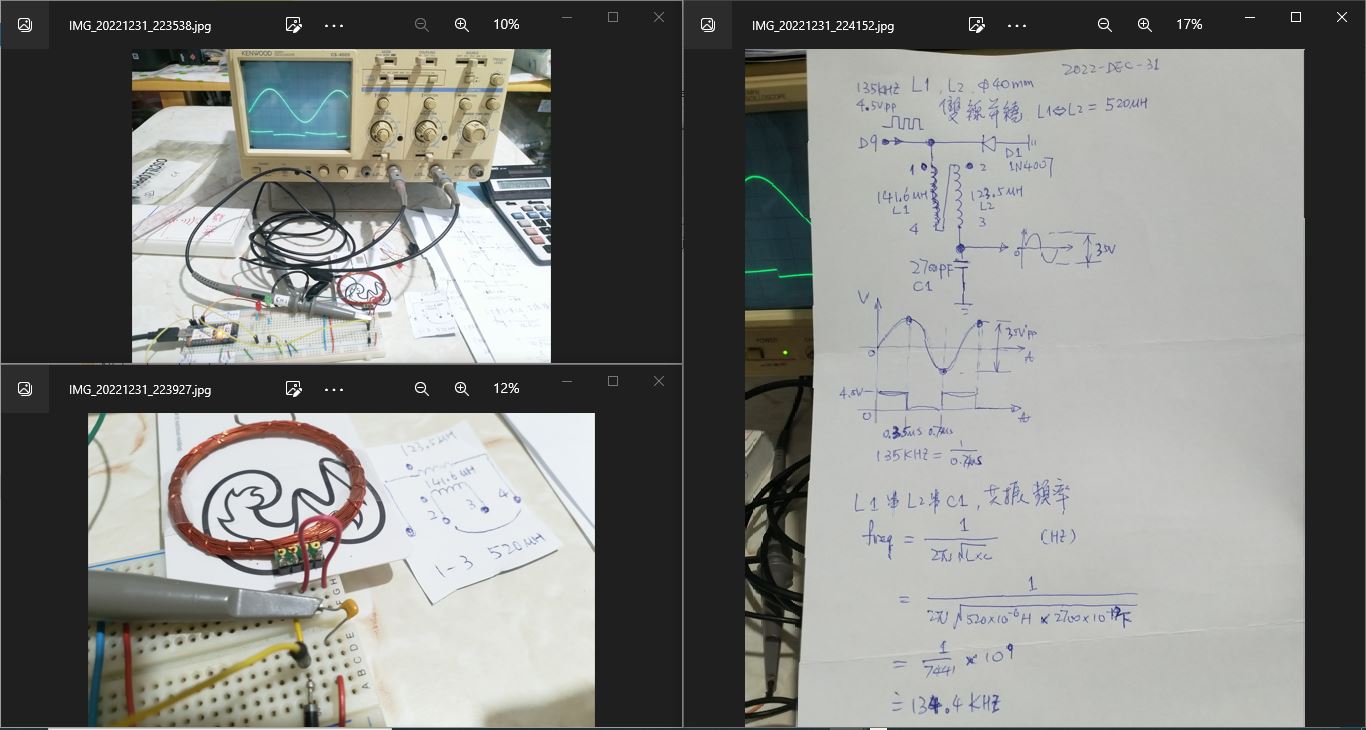 IMG_20221231_223538.jpg
10%
KENWOOD
IMG_20221231_223927.jpg
12%
123.5μH
141.6μH
2 3 4
1-3 520μH
A B C D E
IMG_20221231_224152.jpg
17%
POWER
2022-DEC-31
135KHZ L1, L2 φ40mm
4.5Vpp 雙線并繞 L1⇔L2 = 520μH
D9
D1
1N4007
1 2
141.6μH 123.5μH
L1 L2
4 3
2700pF
C1
0
35V
V
0
35Vpp
t
4.5V
0
t
0.35us 0.7us
135KHZ = 1/0.7us
L1串L2串C1, 共振頻率
freq = 1/2π√LxC (HZ)
= 1/2π√520x10⁻⁶H x 2700x10⁻¹²F
= 1/7441 x 10⁹
≒ 134.4 KHZ